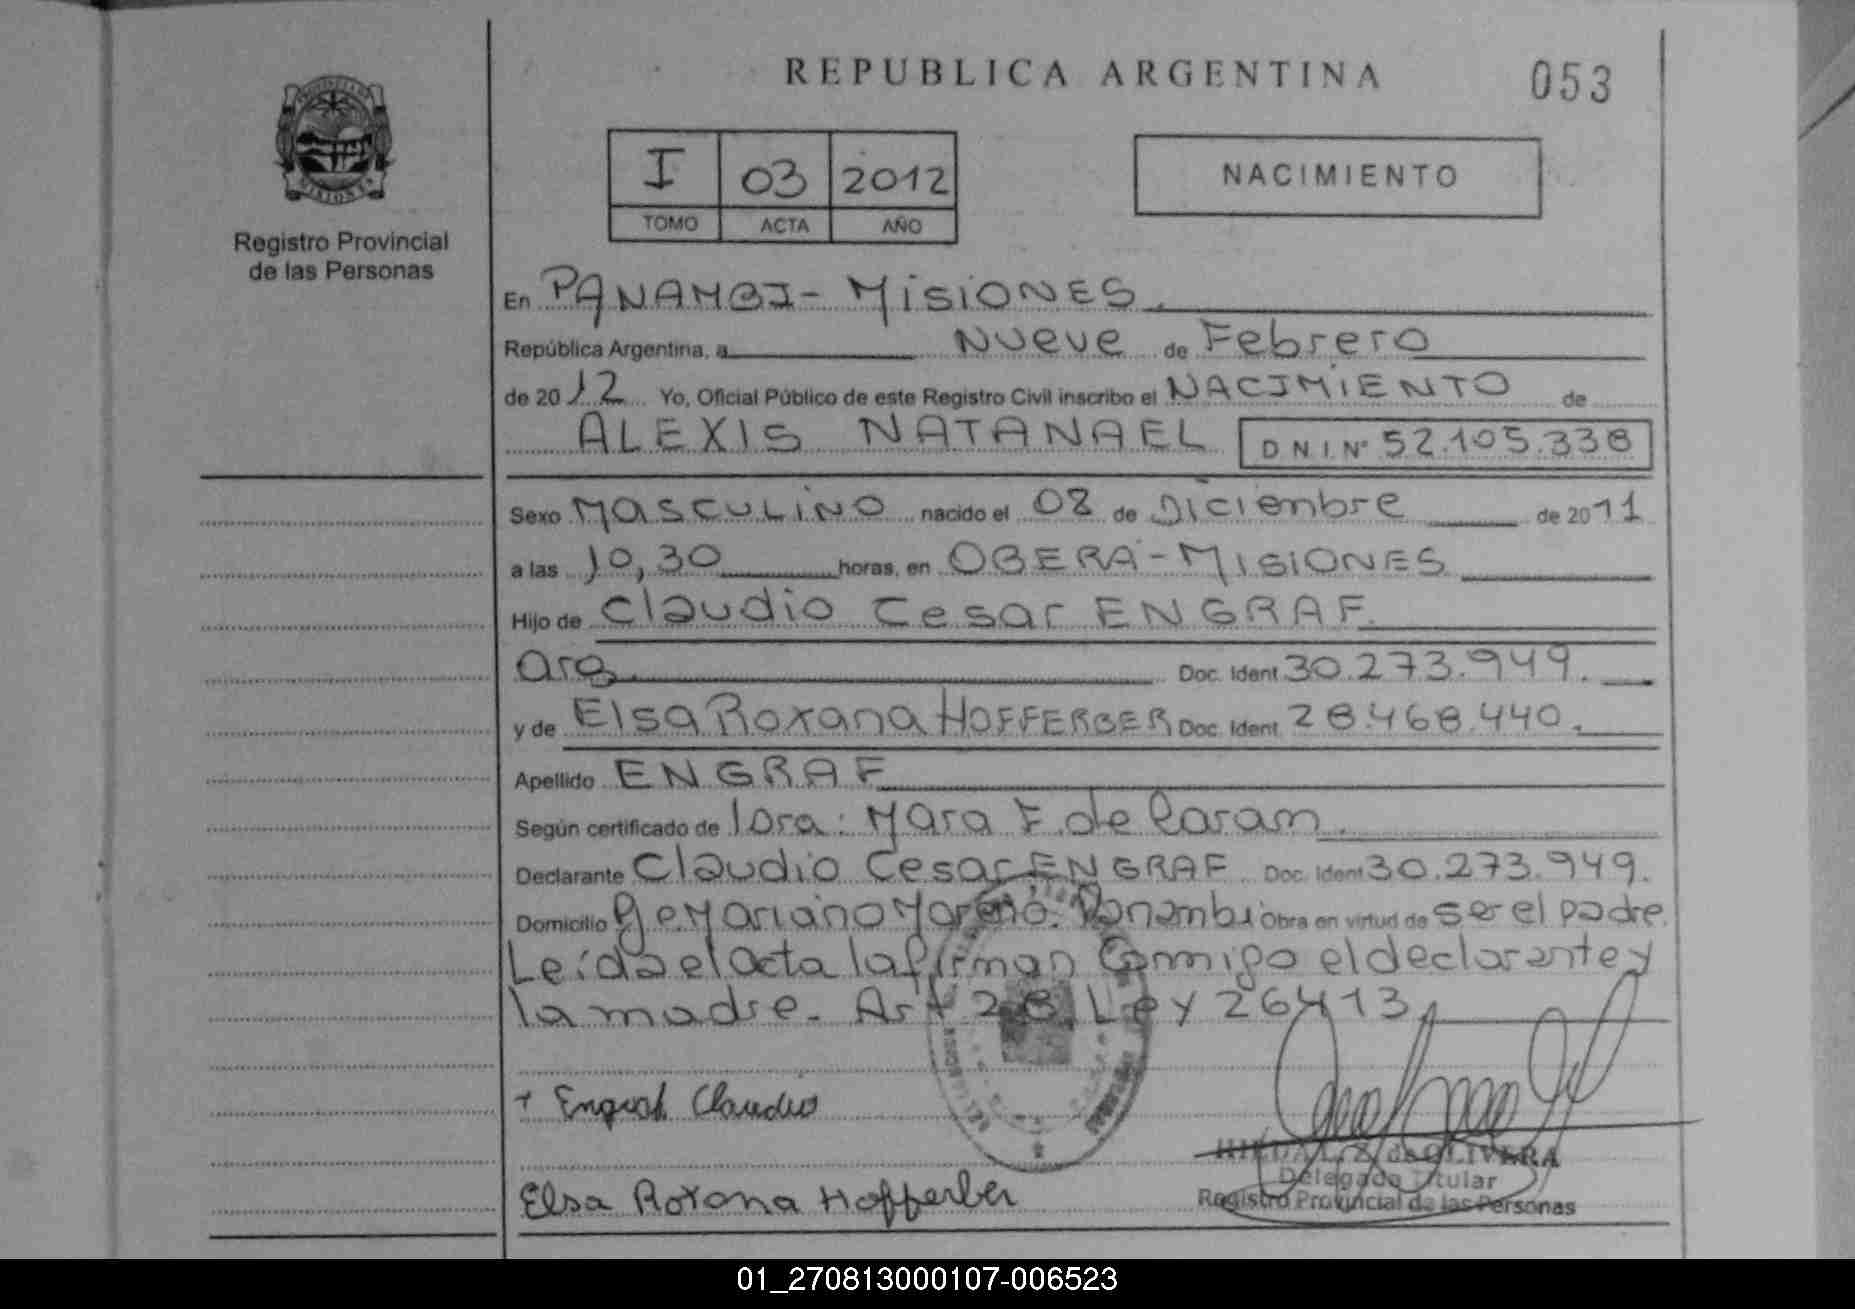 REPUBLICA ARGENTINA
053
Registro Provincial
de las Personas
I 03 2012
TOMO ACTA AÑO
NACIMIENTO
En PANAMBI - MISIONES.
República Argentina, a Nueve de Febrero
de 2012 Yo, Oficial Público de este Registro Civil inscribo el NACIMIENTO de
ALEXIS NATANAEL D N I Nº 52.105.338
Sexo MASCULINO nacido el 08 de Diciembre de 2011
a las 10,30 horas, en OBERA - MISIONES
Hijo de Claudio Cesar ENGRAF.
Arg. Doc. Ident 30.273.949.
y de Elsa Roxana HOFFERBER Doc. Ident 28.468.440.
Apellido ENGRAF
Según certificado de Dra: Mara F. de
Declarante Claudio Cesar ENGRAF Doc. Ident 30.273.949.
Domicilio Mariano Moreno. Panambi Obra en virtud de ser el padre.
Leída el acta la firman conmigo el declarante y
la madre. Art 28 Ley 26413.
+ Engraf Claudio
de OLIVERA
Delegado Titular
Elsa Roxana Hofferber Registro Provincial de las Personas
01_270813000107-006523